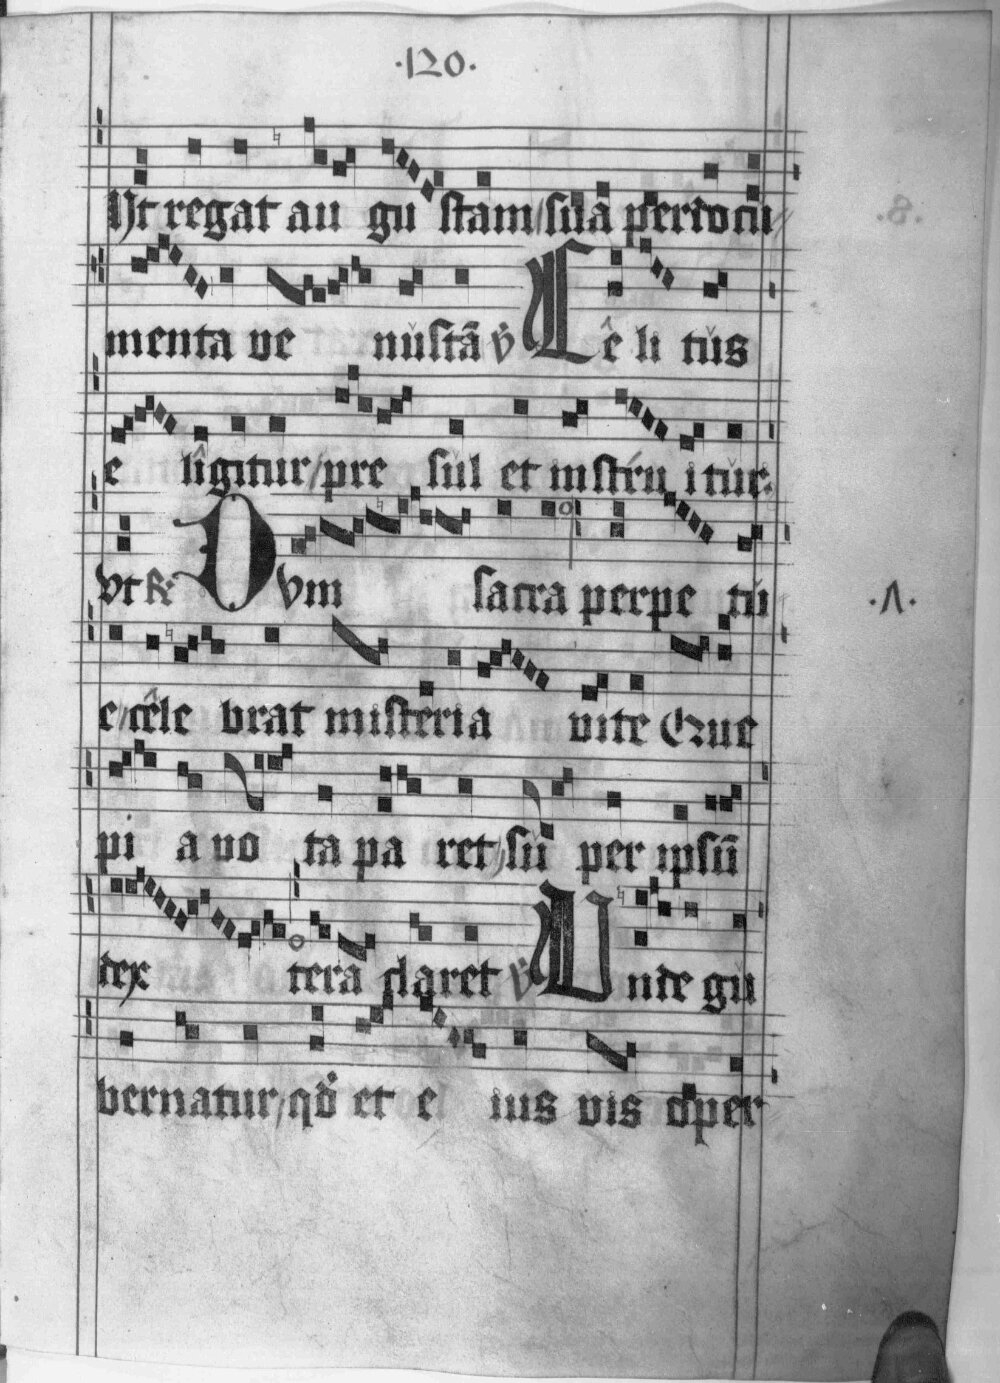 ·120·
Ut regat au gu stam sua per docu
menta ve nustā ℣ Ce li tus
e ligitur pre sul et instru itur
Vt ℟ Dvm sacra perpe tu
e cele brat misteria vite Que
pi a vo ta pa ret su per ipsū
dex tera claret ℣ Unde gu
bernatur qđ et e ius vis oper
·Λ·